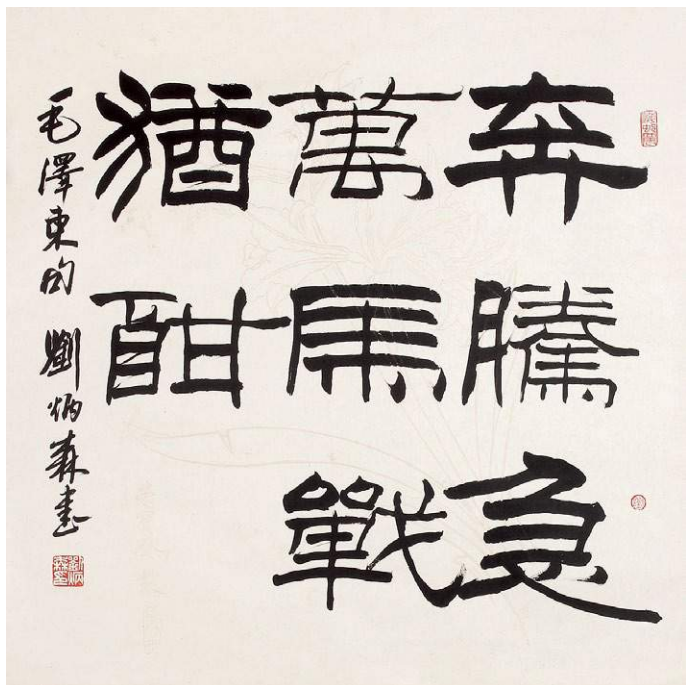 奔騰急
萬馬戰
猶酣
毛澤東句 劉炳森書